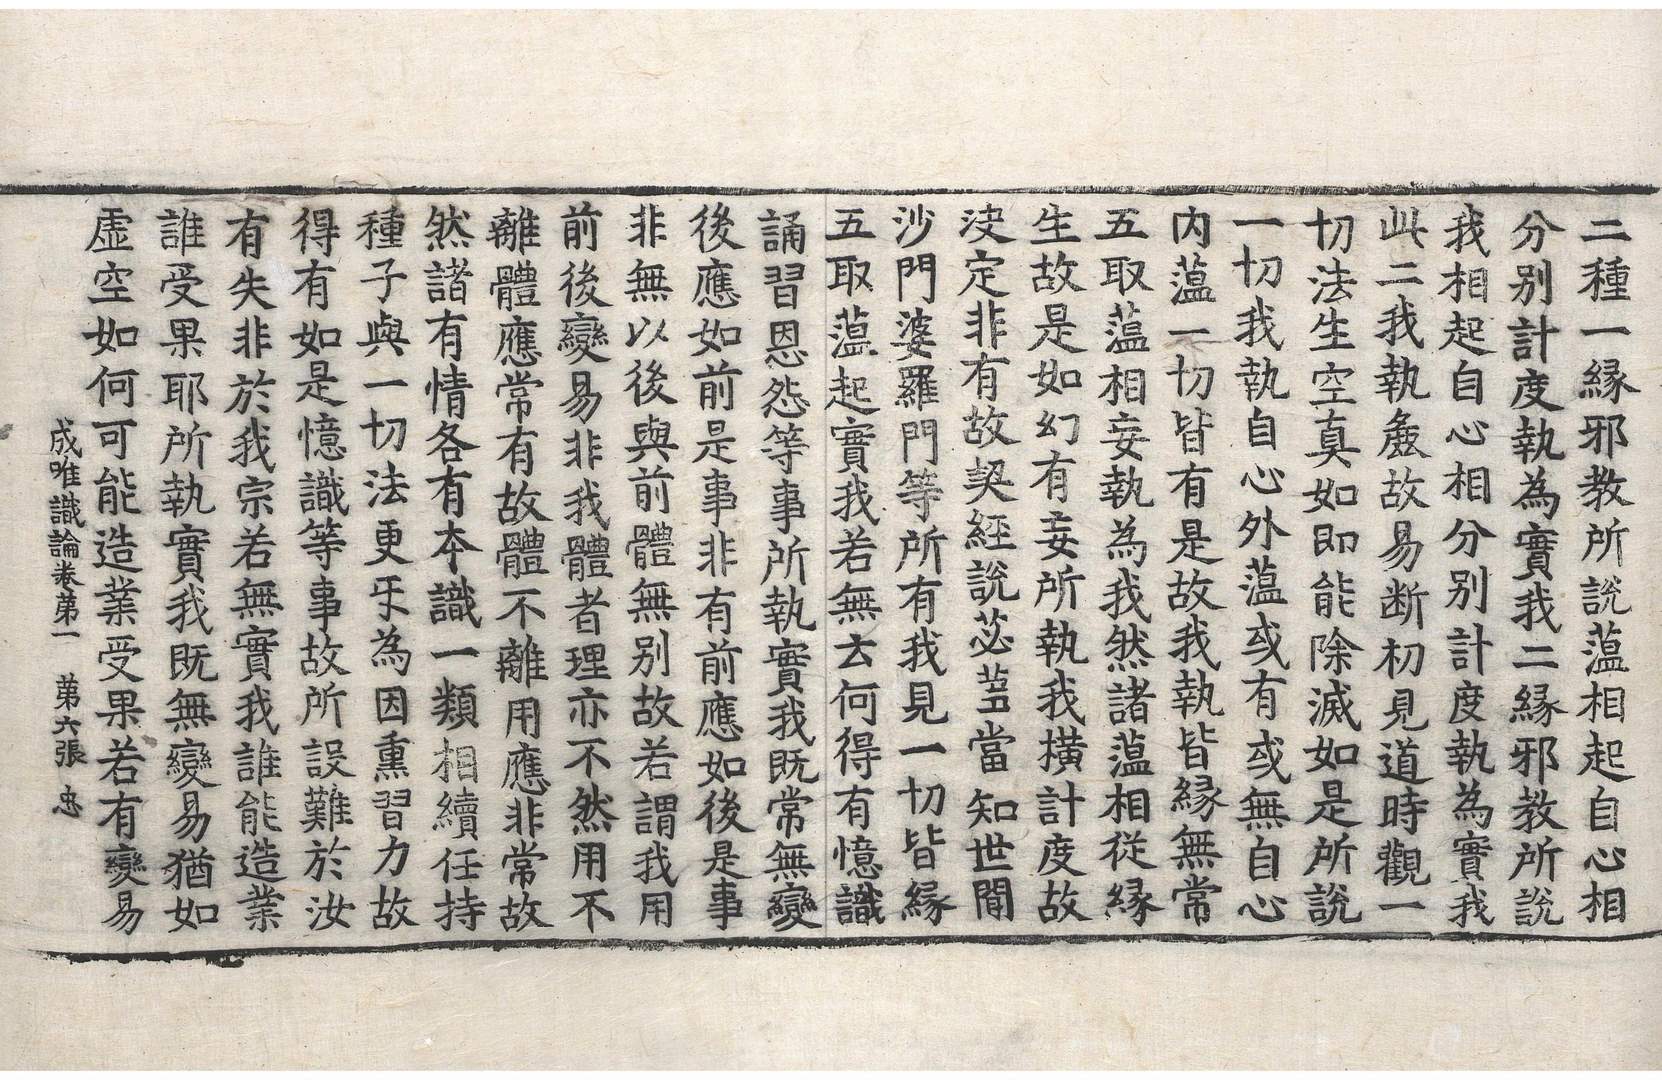 二種一縁邪教所說蕰相起自心相
分别計度執為實我二縁邪教所說
我相起自心相分别計度執為實我
此二我執麁故易断初見道時觀一
切法生空真如即能除滅如是所說
一切我執自心外蕰或有或無自心
内蕰一切皆有是故我執皆縁無常
五取蕰相妄執為我然諸蕰相従縁
生故是如幻有妄所執我橫計度故
决定非有故契經說苾蒭當知世間
沙門婆羅門等所有我見一切皆縁
五取蕰起實我若無云何得有憶識
誦習恩怨等事所執實我既常無變
後應如前是事非有前應如後是事
非無以後與前體無别故若謂我用
前後變易非我體者理亦不然用不
離體應常有故體不離用應非常故
然諸有情各有本識一類相續任持
種子與一切法更㸦為因熏習力故
得有如是憶識等事故所設難於汝
有失非於我宗若無實我誰能造業
誰受果耶所執實我既無變易猶如
虛空如何可能造業受果若有變易
成唯識論卷第一　第六張　忠